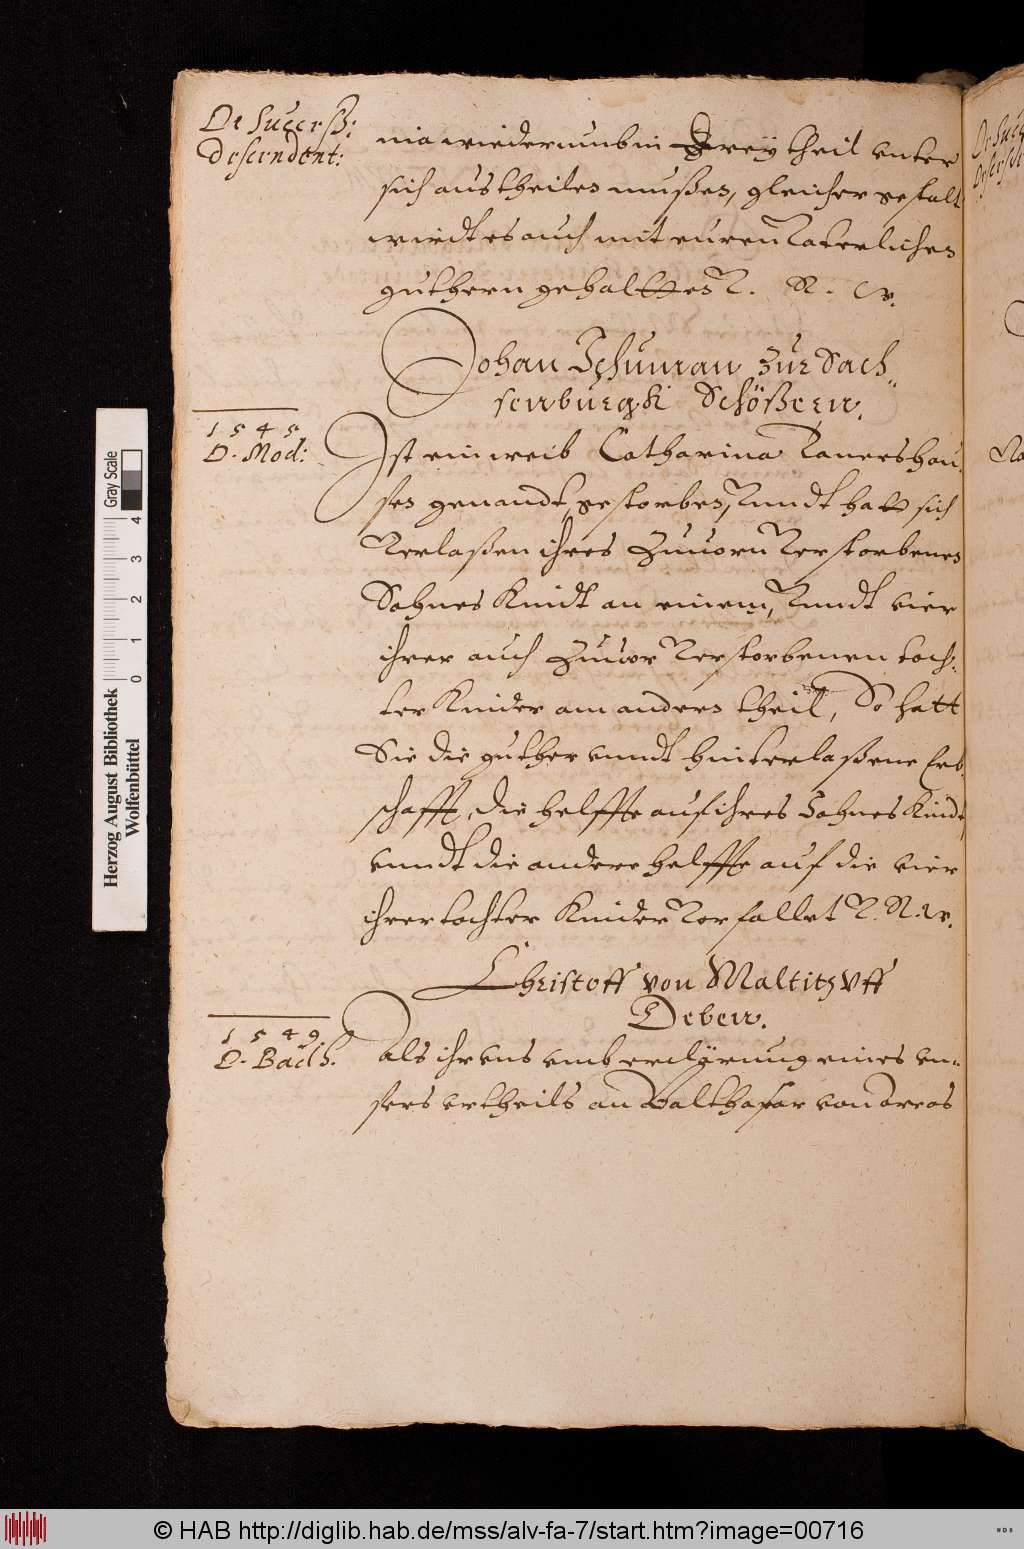 De Succeß:
Descendent:
nia wiederumb in Zweÿ theil vnter
sich austheilen mußen, gleicher gestalt
wirdt es auch mit euren Vaterlichen
guthern gehaltten V. R. W.
Johan Schuman zur Sach„
senburgk Schößern.
1545
D. Mod:
Ist ein weib Catharina Vanershau„
sen genandt, gestorben, Vnndt hatt sich
Verlaßen ihres Zuuorn Verstorbenen
Sohnes Kindt an einem, Vnndt vier
ihrer auch Zuuor Verstorbenen toch„
ter Kinder am andern theil, So hatt
Sie die guther vnndt hinterlaßene Erb„
schafft, die helffte auf ihres Sohnes Kindt,
vnndt die andere helffte auf die vier
ihrer tochter Kinder Verfallet V. R. W.
Christoff von Maltitz Vff
Deben.
1549
D. Bach.
Als ihr vns vmb erclerung eines vn„
sers vrtheils an Balthasar
De Succ
Descend
Na
Gray Scale
0 1 2 3 4
Herzog August Bibliothek
Wolfenbüttel
© HAB http://diglib.hab.de/mss/alv-fa-7/start.htm?image=00716